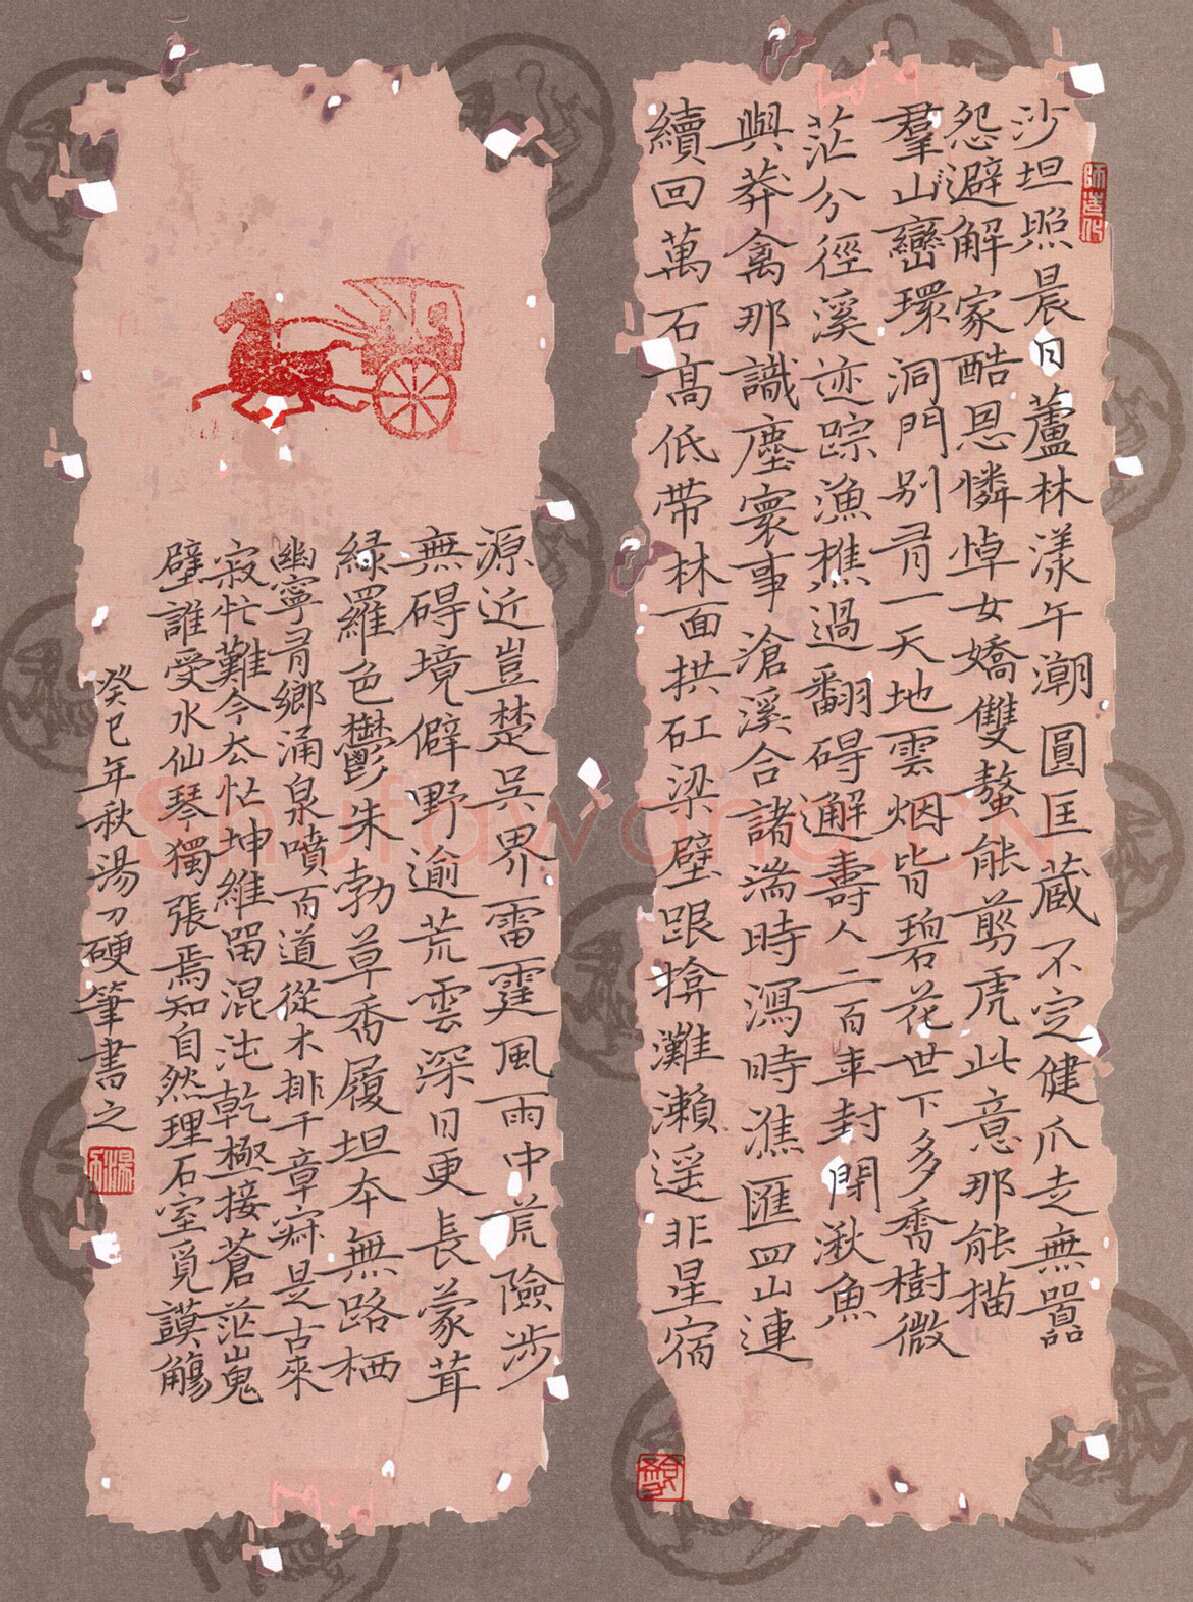 沙坦照晨日蘆林漾午潮圓匡蔵不定健爪走無囂
怨避解家酷恩憐悼女嬌雙螯能剪虎此意那能描
羣山巒環洞門别有一天地雲烟皆碧花世下多喬樹微
茫分徑溪迹踪漁樵過翻碍邂壽人二百年封閉湫魚
與莽禽那識塵寰事滄溪合諸湍時瀉時潐匯四山連
續回萬石高低帶林面拱矼梁壁跟揜灘瀨遥非星宿
源近豈楚吳界雷霆風雨中荒險涉
無碍境僻野逾荒雲深日更長蒙茸
緑羅色鬱朱勃草香履坦本無路栖
幽寧有鄉涌泉噴百道從木排千章寂是古來
寂忙難今太忙坤維留混沌乾極接蒼茫嵬
壁誰受水仙琴獨張焉知自然理石室覓謨觴
癸巳年秋湯刀硬筆書之
師造化
湯
Shufawang.CN